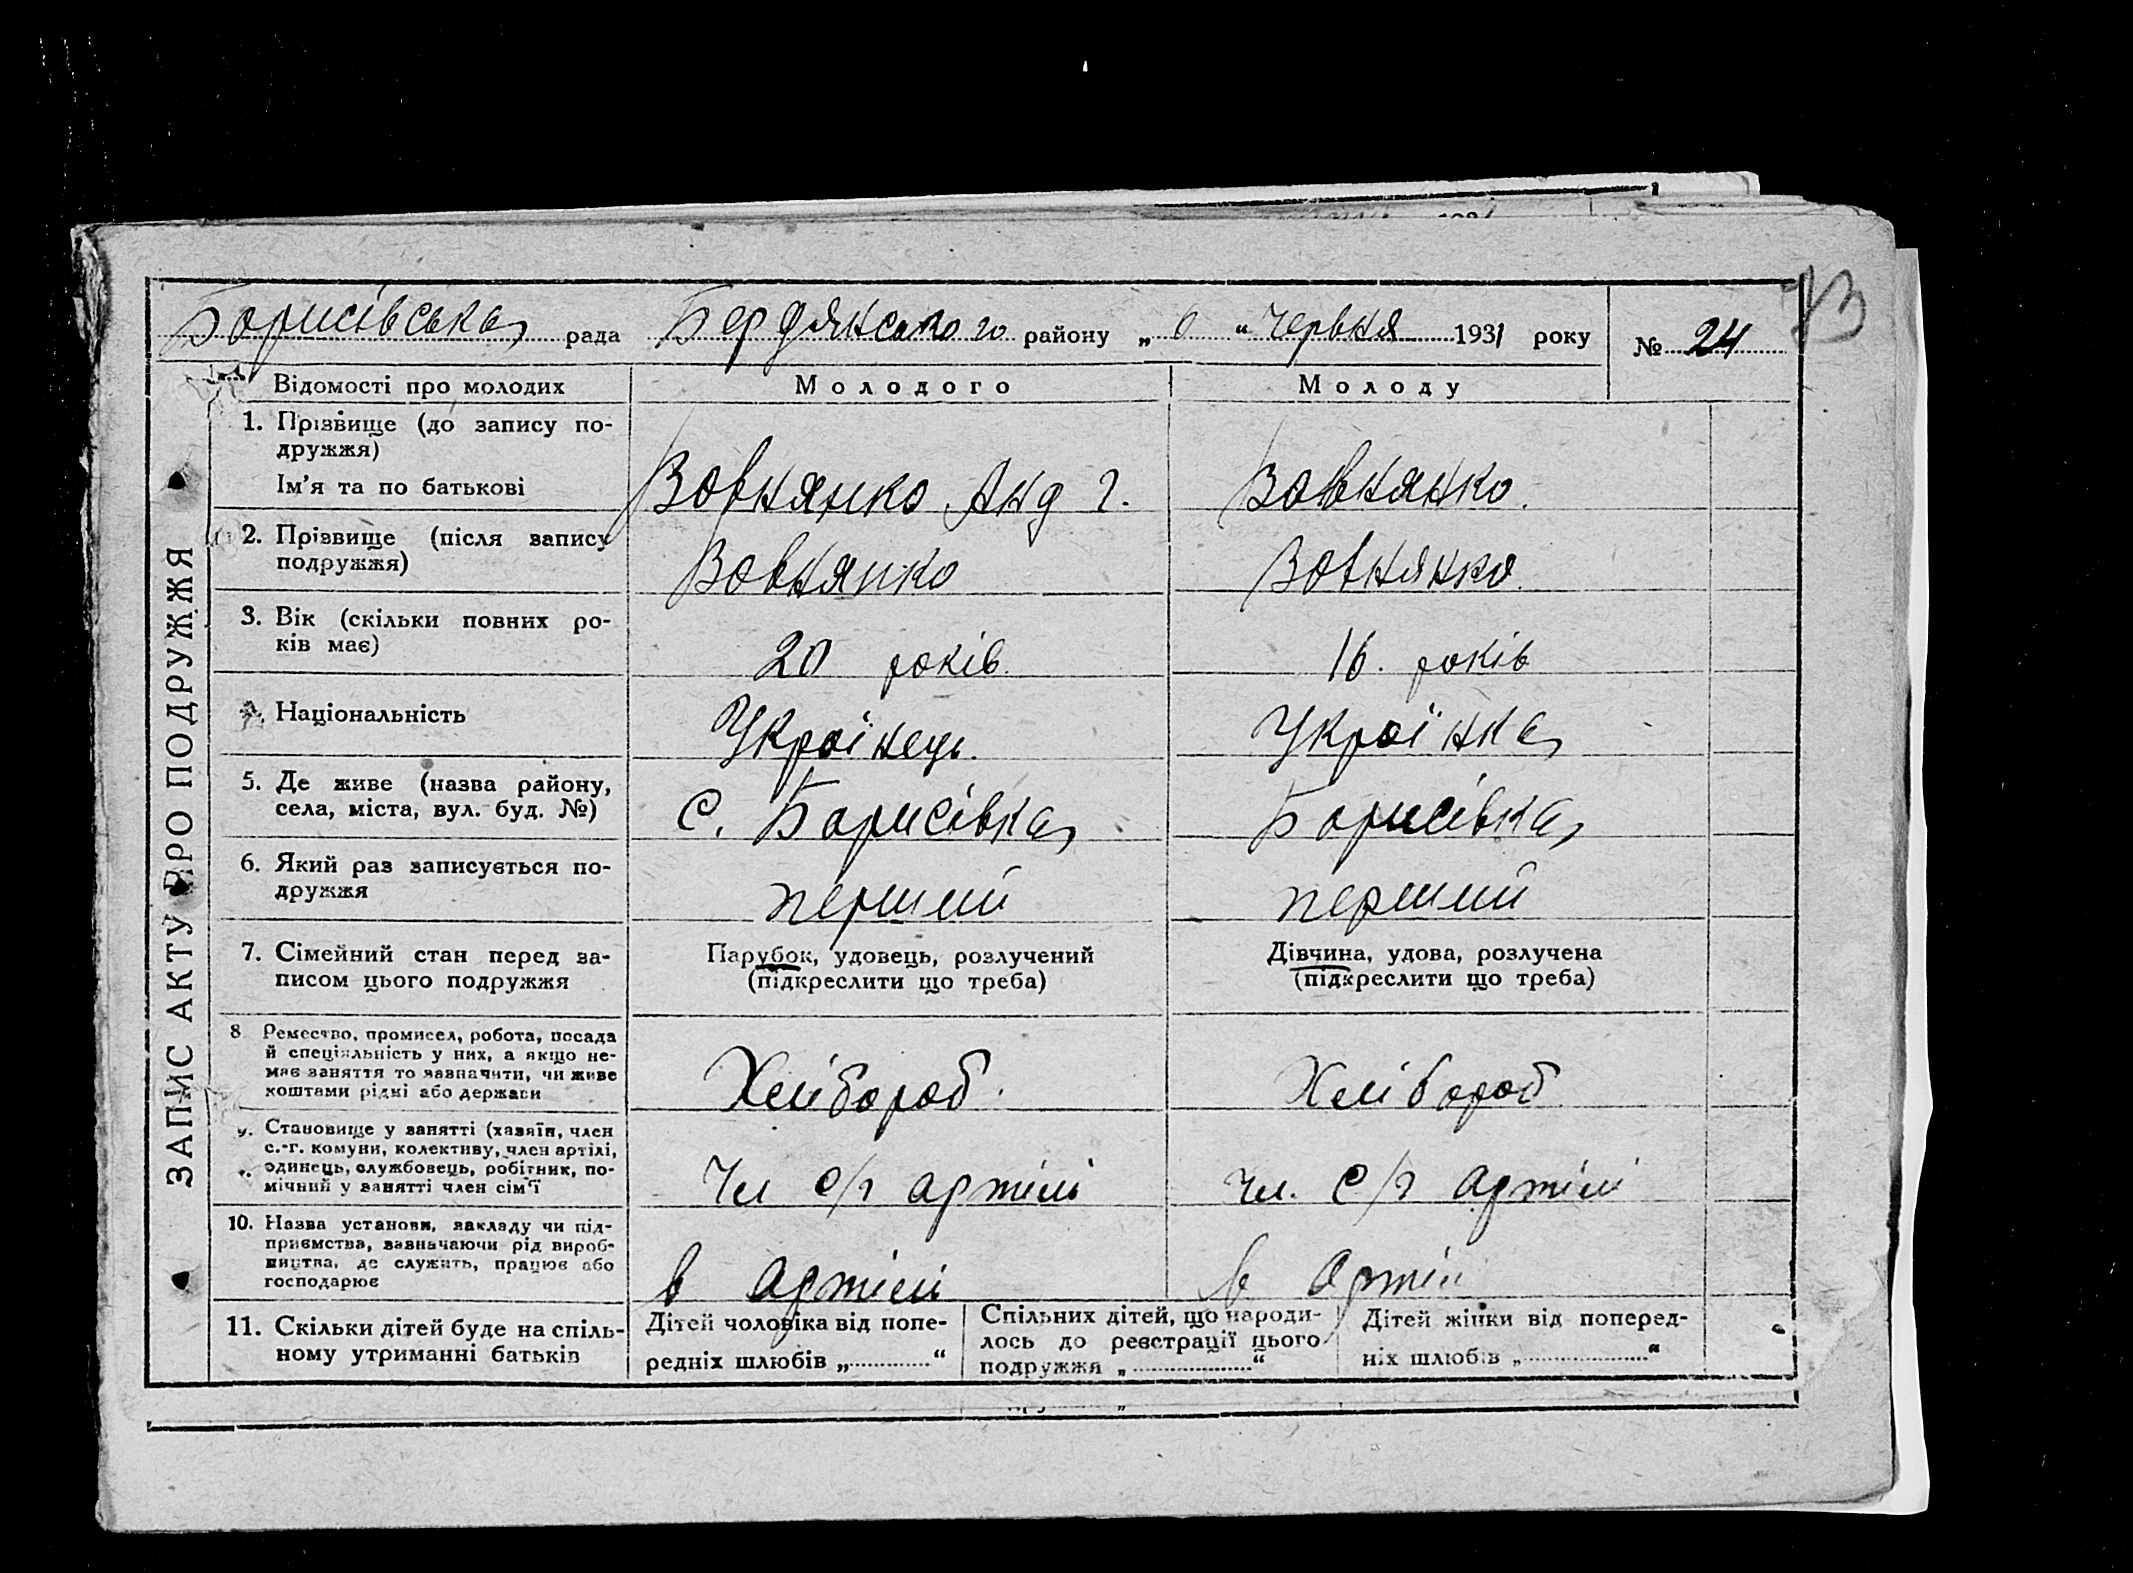 Борисівська рада Бердянського району „ 6 “ Червня 1931 року № 24
Відомості про молодих Молодого Молоду
1. Прізвище (до запису по-
дружжя)
Ім’я та по батькові
Вовнянко Анд Г. Вовнянко.
2. Прізвище (після запису
подружжя)
Вовнянко Вовнянко.
3. Вік (скільки повних ро-
ків має)
20 років. 16. років
Національність
Українець. Українка
5. Де живе (назва району,
села, міста, вул. буд. №)
С. Борисівка Борисівка
6. Який раз записується по-
дружжя
перший перший
7. Сімейний стан перед за-
писом цього подружжя
Парубок, удовець, розлучений
(підкреслити що треба)
Дівчина, удова, розлучена
(підкреслити що треба)
8 Ремество, промисел, робота, посада
й спеціяльність у них, а якщо не-
має заняття то зазначити, чи живе
коштами рідні або держави
Хлібороб. Хлібороб
9. Становище у занятті (хазяїн, член
с.-г. комуни, колективу, член артілі,
одинець, службовець, робітник, по-
мічний у занятті член сім’ї
Чл с/г артілі Чл. с/г артілі
10. Назва установи, закладу чи під-
приємства, зазначаючи рід вироб-
ництва, де служить, працює або
господарює
в артілі в артілі
11. Скільки дітей буде на спіль-
ному утриманні батьків
Дітей чоловіка від попе-
редніх шлюбів „ “
Спільних дітей, що народи-
лось до реєстрації цього
подружжя „ “
Дітей жінки від поперед-
ніх шлюбів „ “
ЗАПИС АКТУ ПРО ПОДРУЖЖЯ